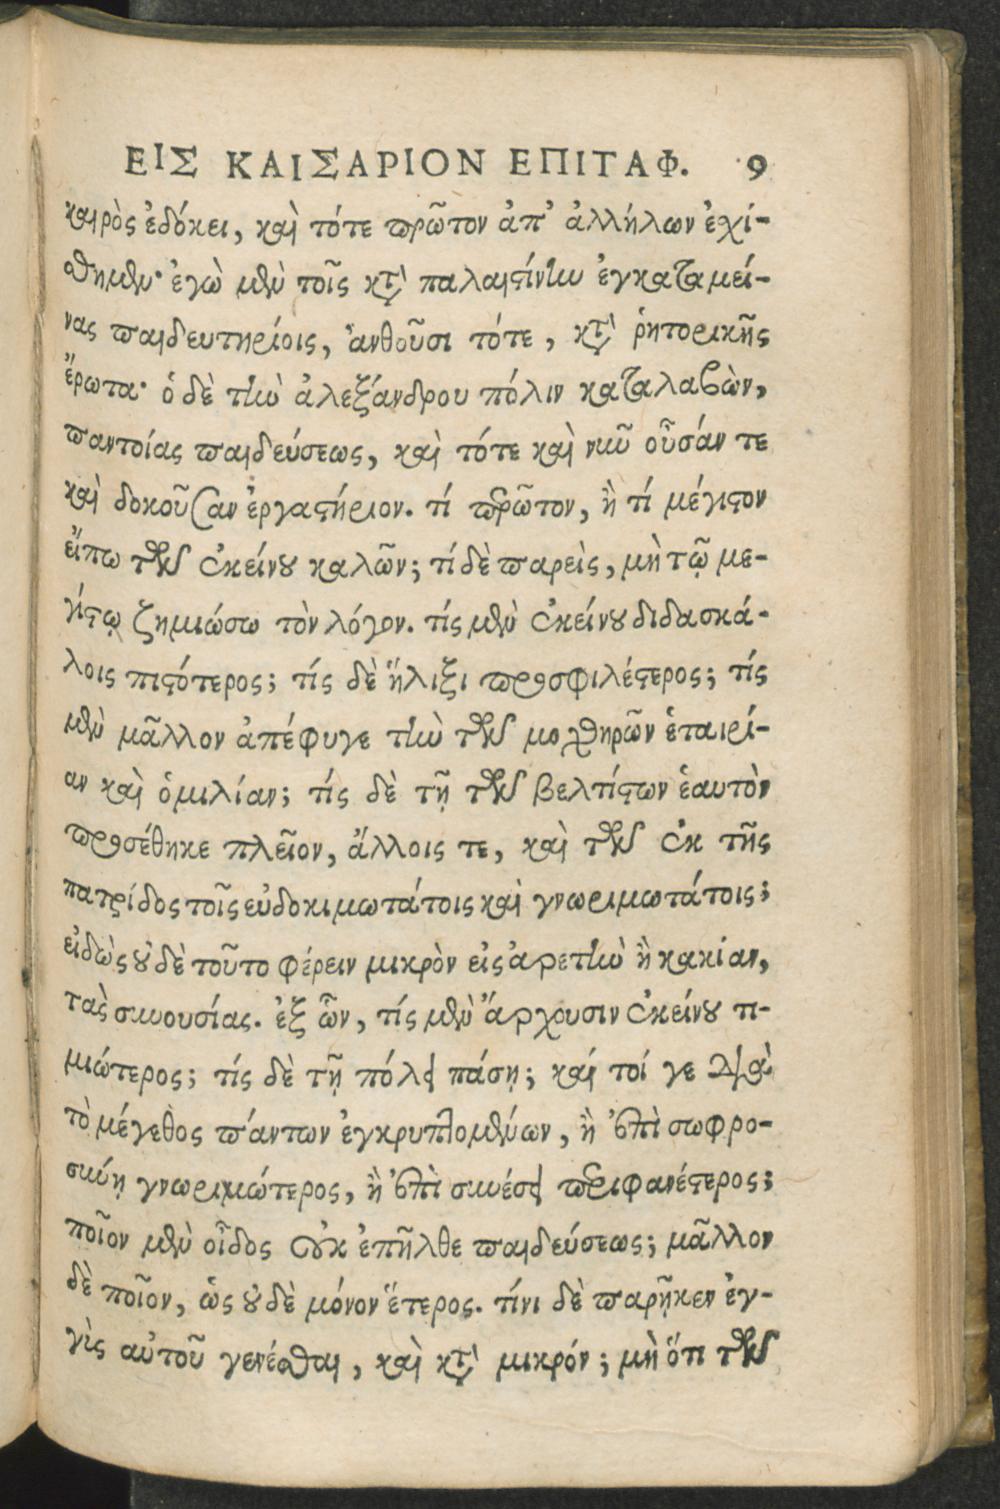 ΕΙΣ ΚΑΙΣΑΡΙΟΝ ΕΠΙΤΑΦ. 9
καιρὸς ἐδόκει, καὶ τότε πρῶτον ἀπ' ἀλλήλων ἐχί-
σθημεν· ἐγὼ μὲν τοῖς κατὰ παλαιστίνην ἐγκαταμεί-
νας παιδευτηρίοις, ἀνθοῦσι τότε, κατὰ ῥητορικῆς
ἔρωτα· ὁ δὲ τὴν ἀλεξάνδρου πόλιν καταλαβὼν,
παντοίας παιδεύσεως, καὶ τότε καὶ νῦν οὖσάν τε
καὶ δοκοῦσαν ἐργαστήριον. τί πρῶτον, ἢ τί μέγιστον
εἴπω τῶν ἐκείνου καλῶν; τί δὲ παρεὶς, μὴ τῷ με-
γίστῳ ζημιώσω τὸν λόγον. τίς μὲν ἐκείνου διδασκά-
λοις πιστότερος; τίς δὲ ἥλιξι προσφιλέστερος; τίς
μὲν μᾶλλον ἀπέφυγε τὴν τῶν μοχθηρῶν ἑταιρί-
αν καὶ ὁμιλίαν; τίς δὲ τῇ τῶν βελτίστων ἑαυτὸν
προσέθηκε πλεῖον, ἄλλοις τε, καὶ τῶν ἐκ τῆς
πατρίδος τοῖς εὐδοκιμωτάτοις καὶ γνωριμωτάτοις;
εἰδὼς οὐδὲ τοῦτο φέρειν μικρὸν εἰς ἀρετὴν ἢ κακίαν,
τὰς συνουσίας. ἐξ ὧν, τίς μὲν ἄρχουσιν ἐκείνου τι-
μιώτερος; τίς δὲ τῇ πόλει πάσῃ; καί τοί γε διὰ
τὸ μέγεθος πάντων ἐγκρυπτομένων, ἢ ἐπὶ σωφρο-
σύνῃ γνωριμώτερος, ἢ ἐπὶ συνέσει περιφανέστερος;
ποῖον μὲν εἶδος οὐκ ἐπῆλθε παιδεύσεως; μᾶλλον
δὲ ποῖον, ὡς οὐδὲ μόνον ἕτερος. τίνι δὲ παρῆκεν ἐγ-
γὺς αὐτοῦ γενέσθαι, καὶ κατὰ μικρόν; μὴ ὅτι τῶν